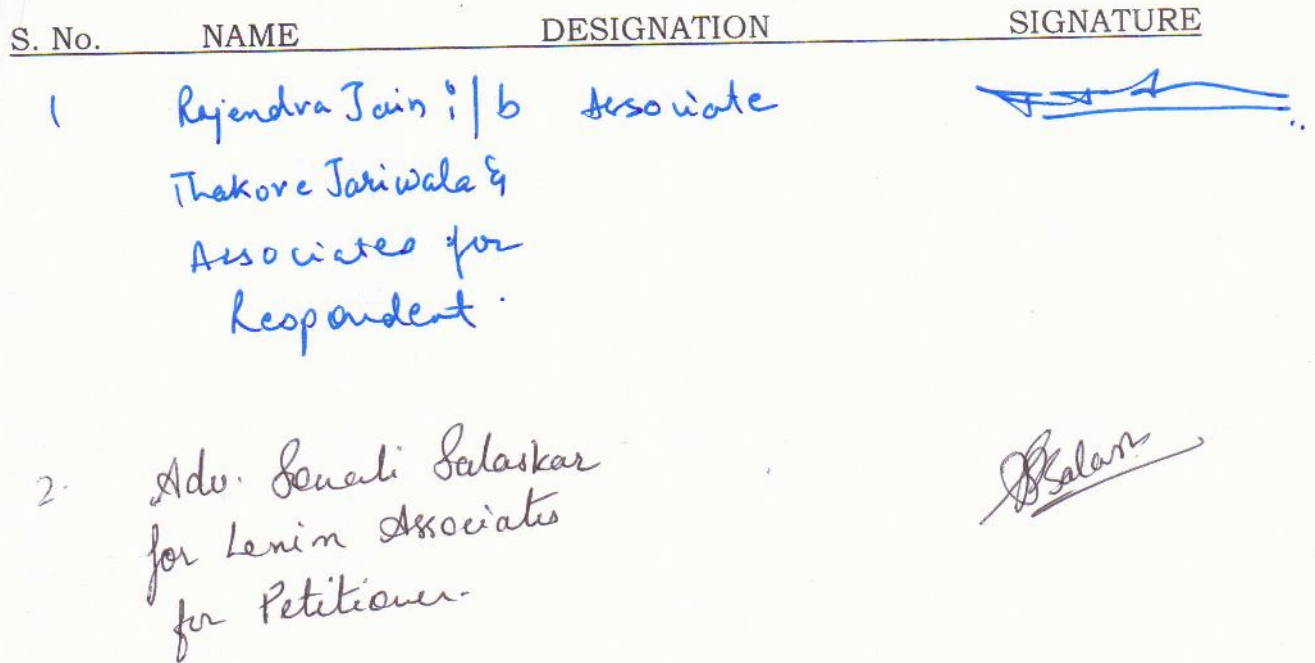 S. No. NAME DESIGNATION SIGNATURE
1 Rajendra Jain i/b Associate
Thakore Jariwala &
Associates for
Respondent.
2. Adv. Sonali Salaskar
for Lenin Associates
for Petitioner.